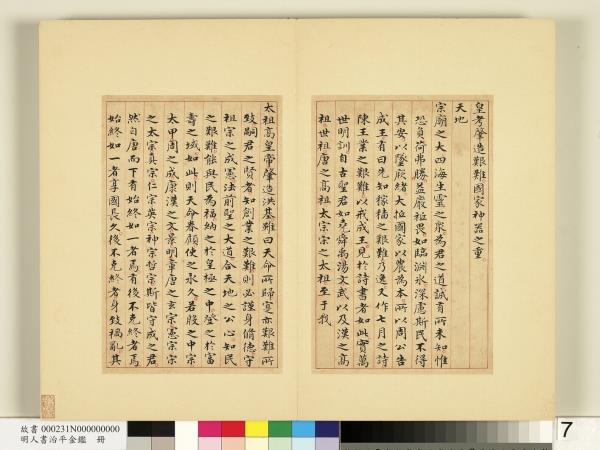 皇考肇造艱難國家神器之重
天地
宗廟之大四海生靈之衆為君之道誠有所未知惟
恐負荷弗勝益嚴祗畏如臨淵氷深慮斯民不得
其安以墜厥緒大抵國家以農為本所以周公告
成王首曰先知稼穡之艱難乃逸又作七月之詩
陳王業之艱難以戒成王見於詩書者如此實萬
世明訓自古聖君如堯舜禹湯文武以及漢之高
祖世祖唐之高祖太宗宋之太祖至于我
太祖高皇帝肇造洪基雖曰天命所歸寔亦艱難所
致嗣君之賢者知創業之艱難則必謹身脩德守
祖宗之成憲法前聖之大道合天地之公心知民
之艱難能與民為福納之於皇極之中登之於富
壽之域如此則天命眷顧使之永久若殷之中宗
太甲周之成康漢之文景明章唐之玄宗憲宗宋
之太宗真宗仁宗英宗神宗哲宗斯皆守成之君
然自唐而下有始終如一者焉有後不克終者焉
始終如一者享國長久後不克終者身致禍亂其
故書 000231N000000000
明人書治平金鑑 冊
7